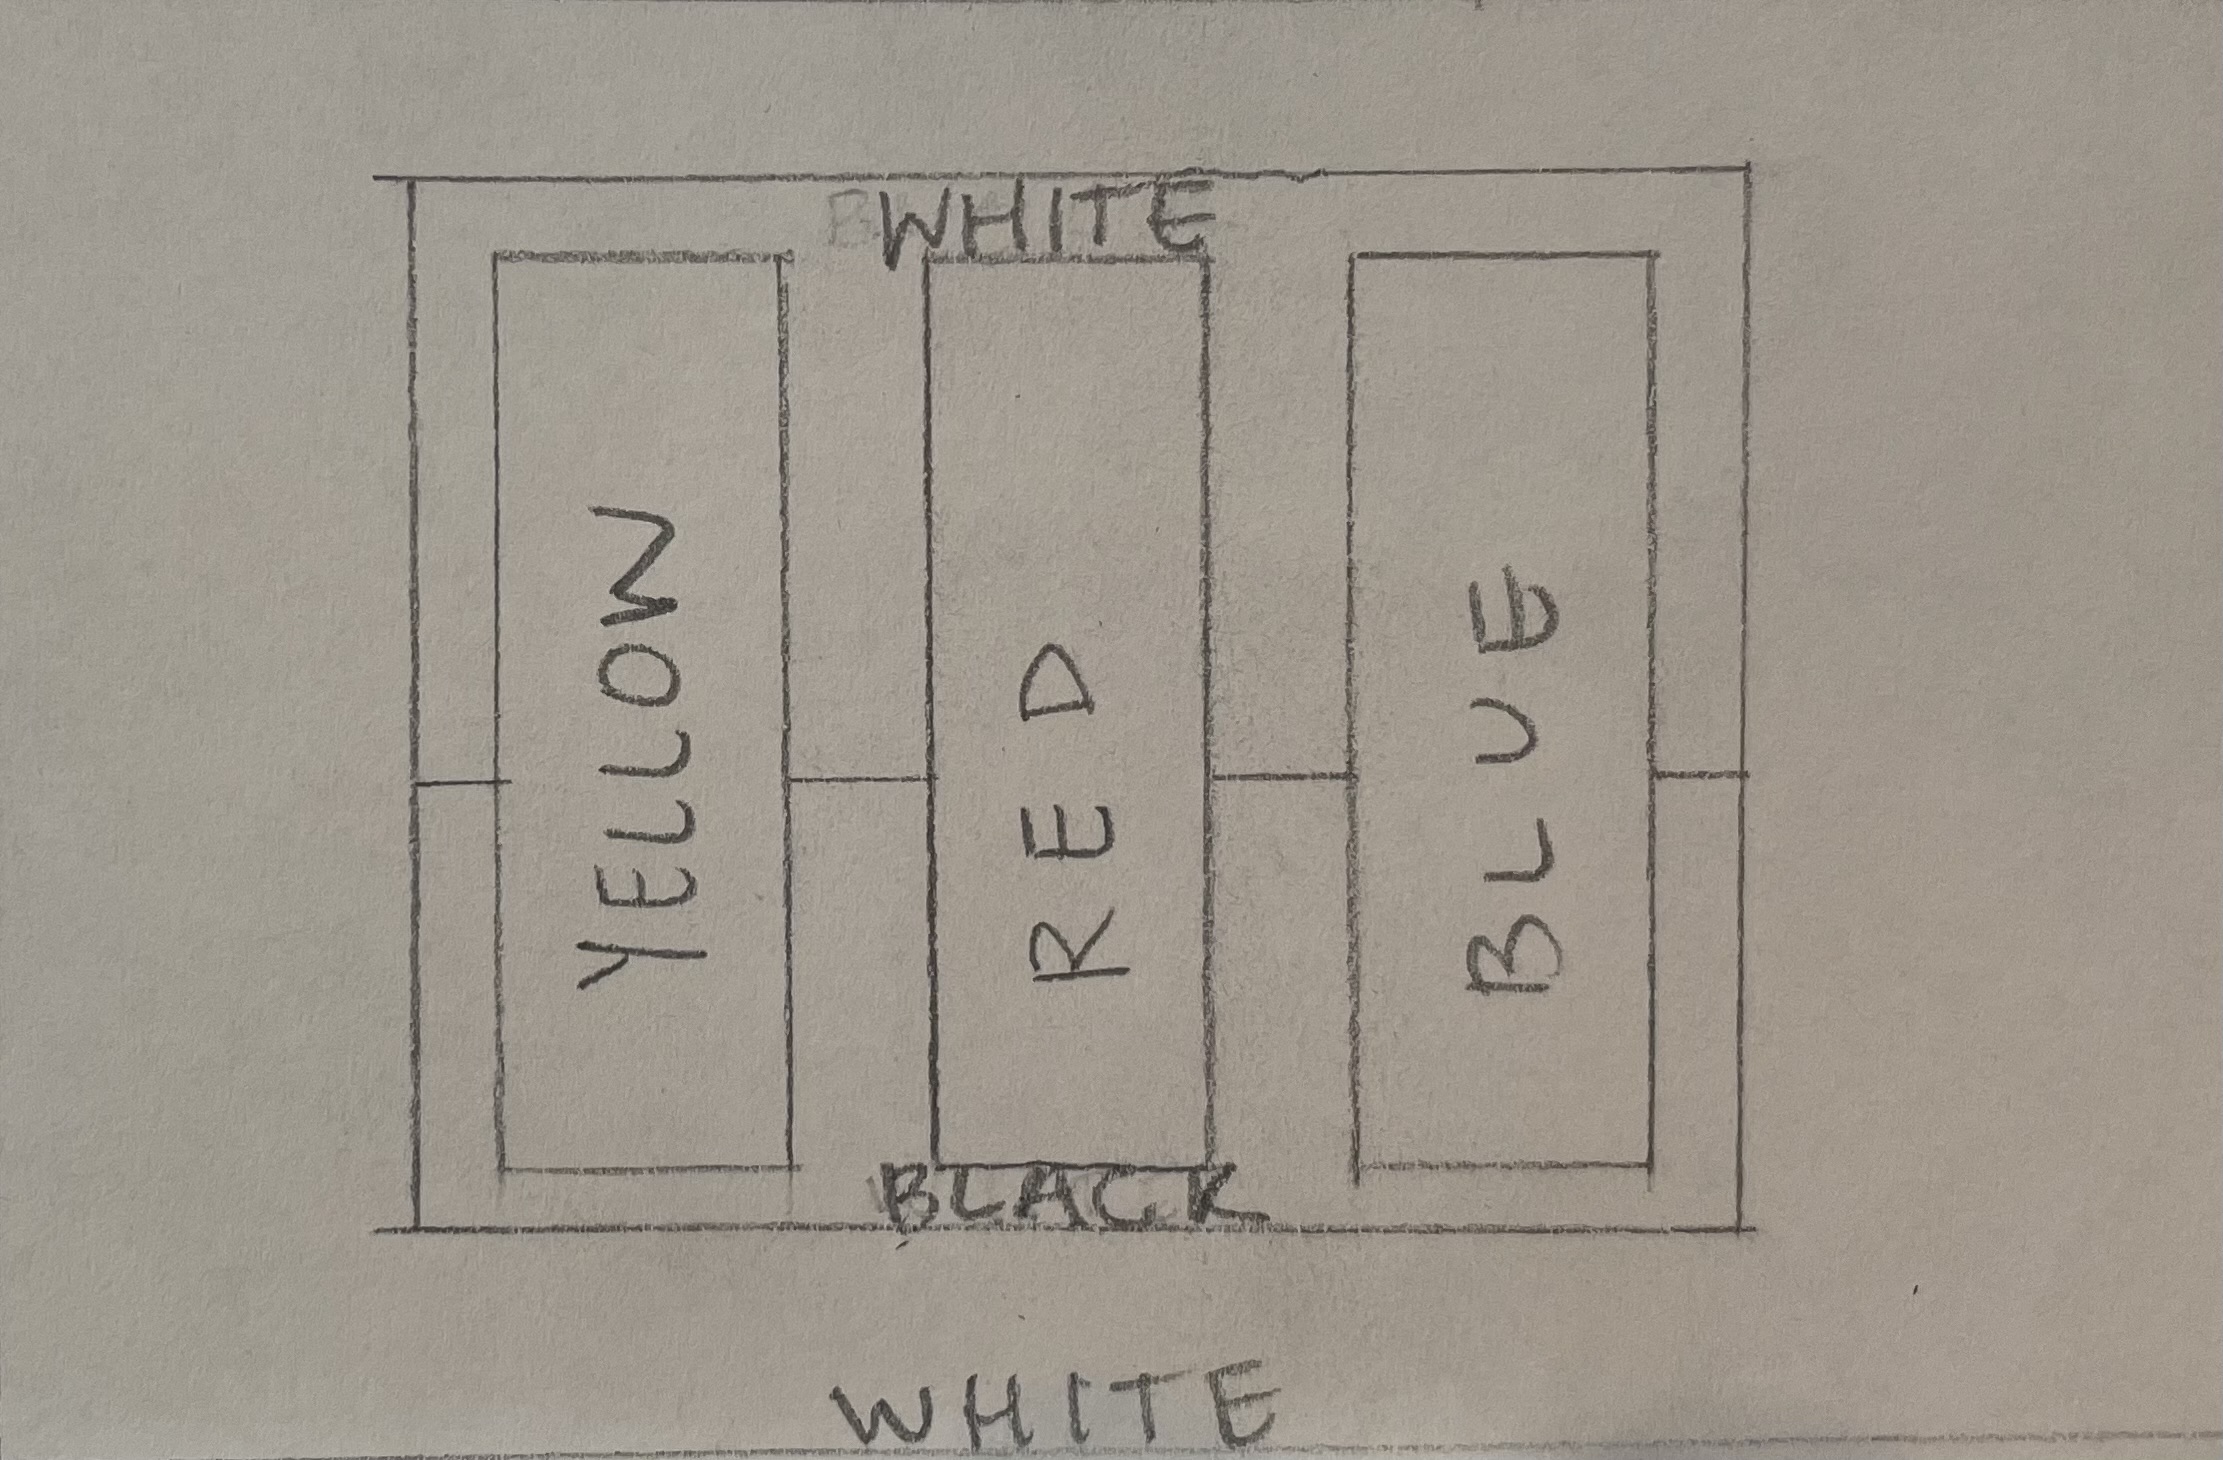 WHITE
YELLOW
RED
BLUE
BLACK
WHITE